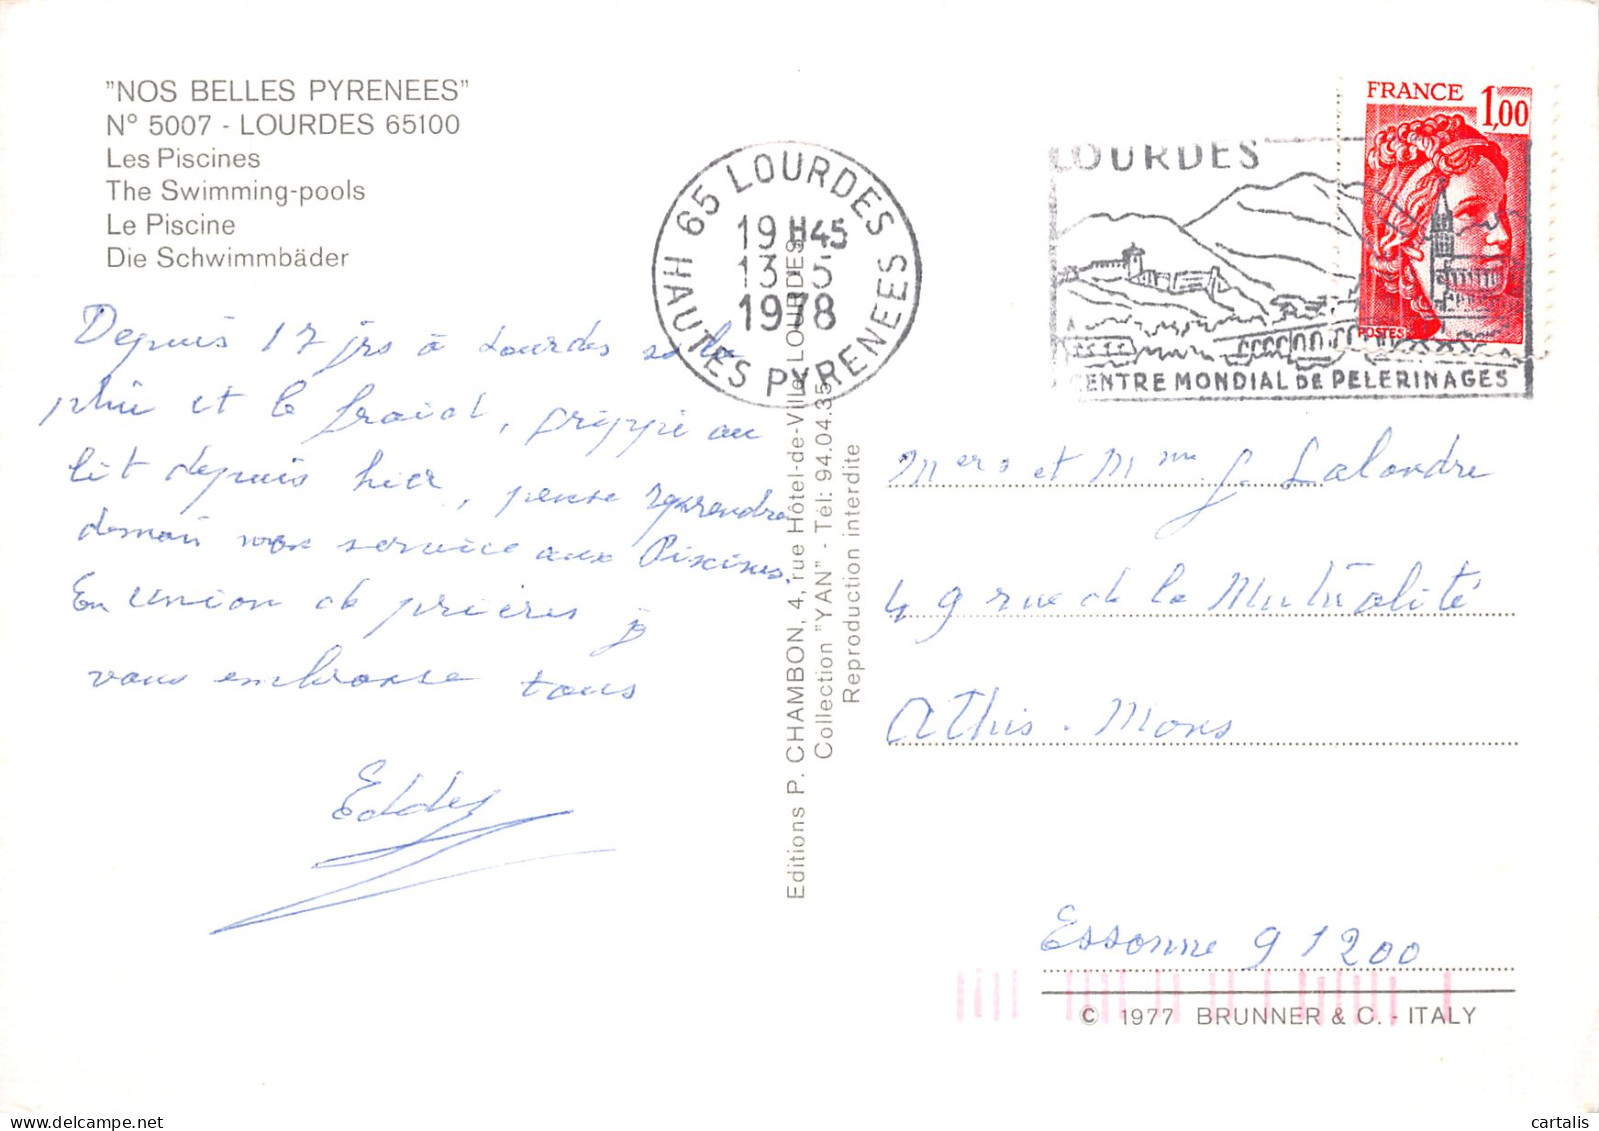 "NOS BELLES PYRENEES"
N° 5007 - LOURDES 65100
Les Piscines
The Swimming-pools
Le Piscine
Die Schwimmbäder
Depuis 17 jrs à Lourdes la
pluie et le froid, grippé au
lit depuis hier, pense reprendre
demain mon service aux Piscines.
En union de prières je
vous embrasse tous
Eddy
Editions P. CHAMBON, 4, rue Hôtel-de-Ville LOURDES
Collection "YAN" - Tél: 94.04.35
Reproduction interdite
65 LOURDES
19 H45
13-5
1978
HAUTES PYRENEES
LOURDES
CENTRE MONDIAL DE PELERINAGES
FRANCE 1,00
POSTES
et Mme J. Lalandre
49 rue de la Mutualité
Athis-Mons
Essonne 91200
© 1977 BRUNNER & C. - ITALY
cartalis